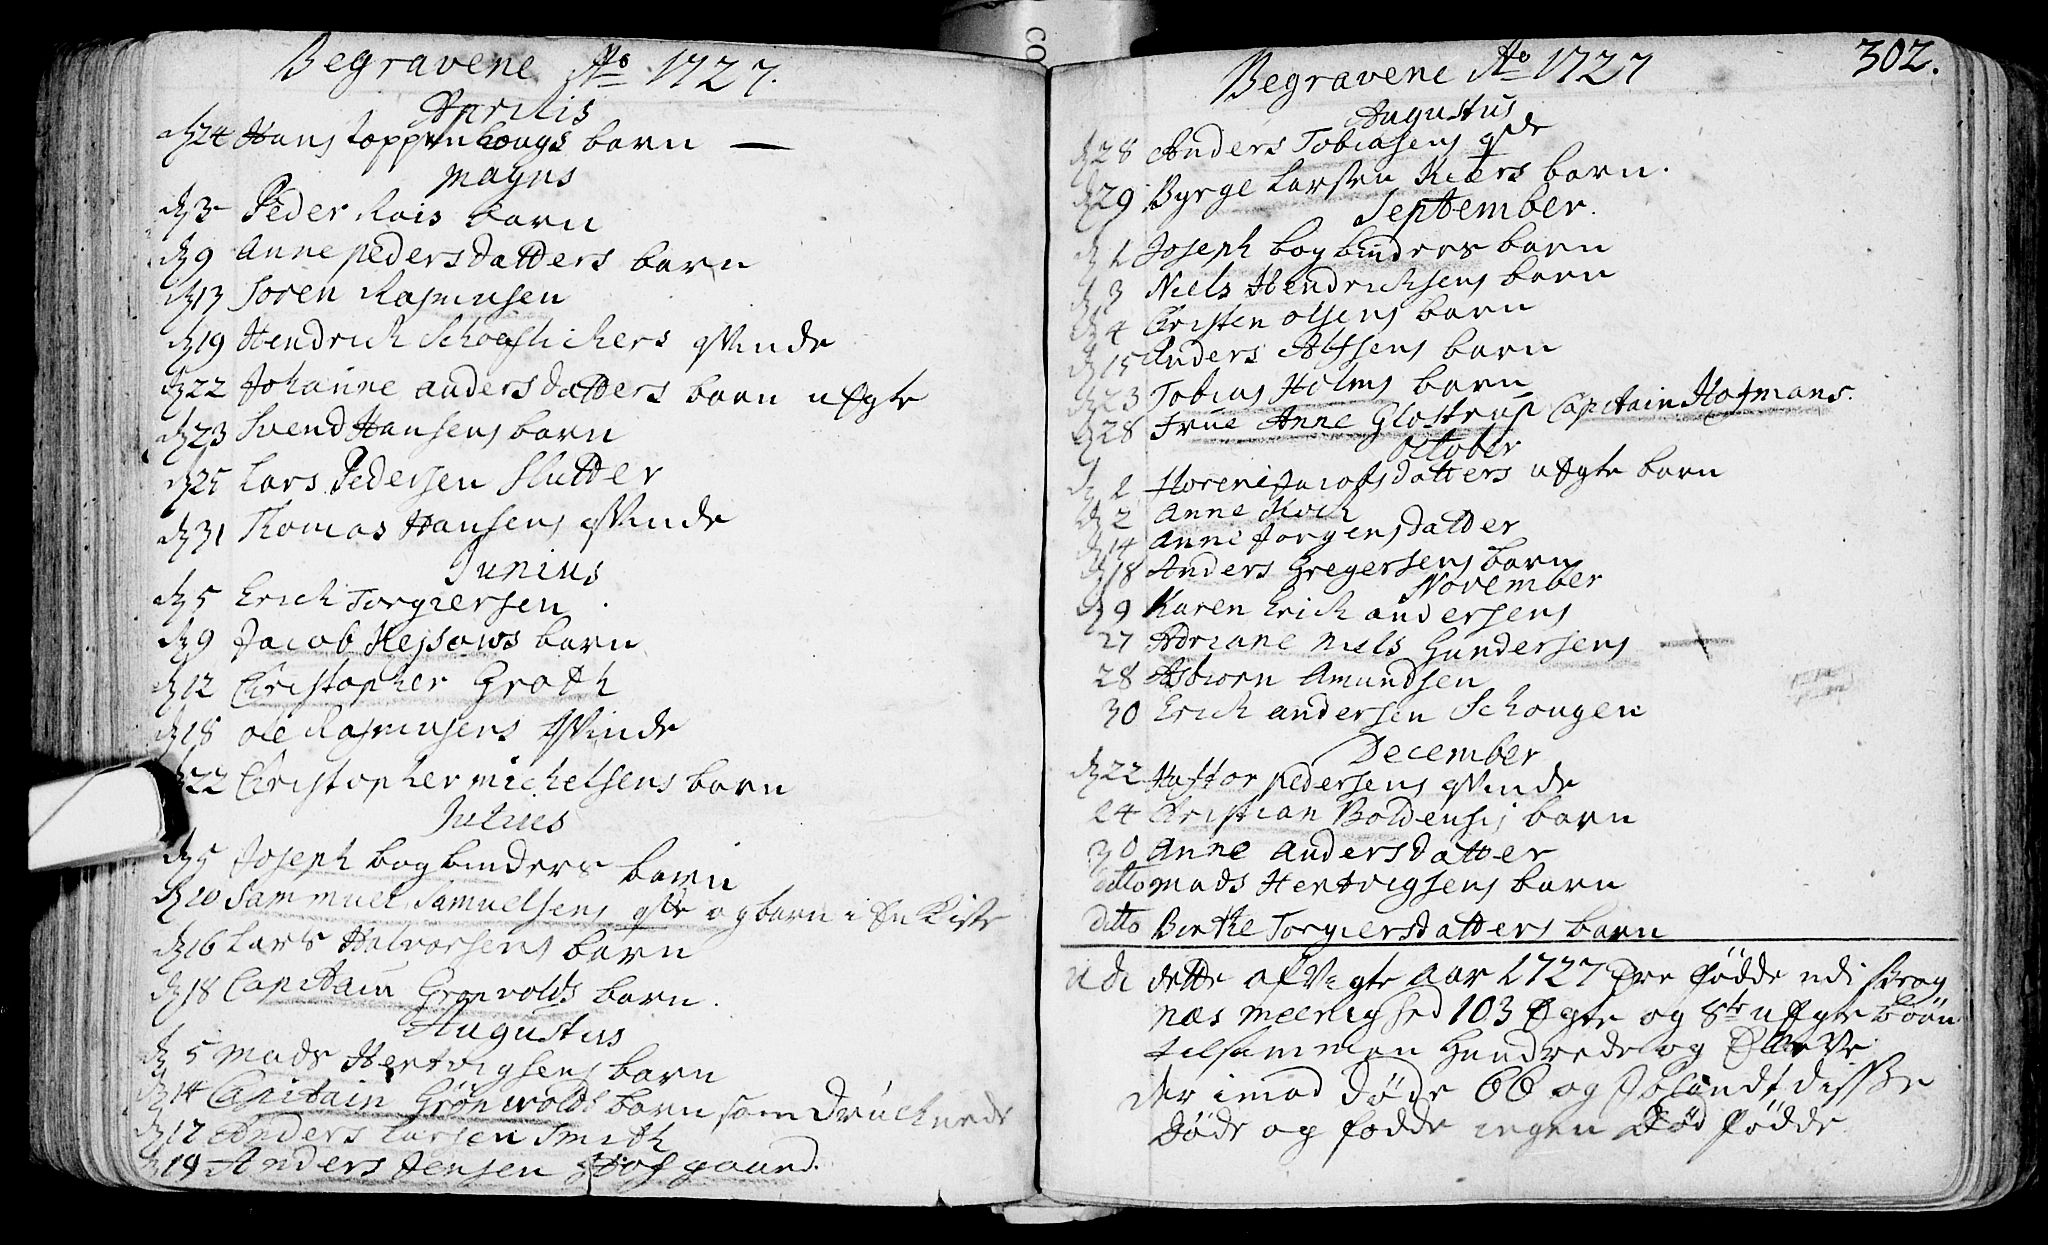 Begravene Ao 1727.
Aprilis
d 24 Hans toppenhougs barn —
Mayus
d 3 Peder Rois barn
d 9 Anne pedersdatters barn
d 13 Soren Rasmusen
d 19 Hendrich Schoeflichers qvinde
d 22 Johanne andersdatters barn uægte
d 23 Svend Hansens barn
d 25 Lars Pedersen Slutter
d 31 Thomas Hansens qvinde
Junius
d 5 Erich Torgiersen
d 9 Jacob Hejsows barn
d 12 Christopher Groth
d 18 ole Rasmusens qvinde
d 22 Christopher michelsens barn
Julius
d 5 Joseph bogbinders barn
d 10 Sammuel Samuelsens qde og barn i en Kiste
d 16 Lars Halvorsens barn
d 18 Capitain Gronvolds barn.
Augustus
d 5 Mads Hertvigsens barn
d 14 Capitain Grönwolds barn som drucknede
d 17 Anders Larsen Smith
d 19 Anders Jensen Hofgaard.
Begravene Ao 1727
302.
Augustus
d 28 Anders Tobiasens qde
d 29 Byrge Larsen Kiers barn.
September.
d 1 Joseph bogbinders barn
d 3 Niels Hendrichsens barn
d 4 Christen olsens barn
d 15 Anders Alfsens barn
d 23 Tobias Holms barn
d 28 Frue Anne Glostrup Capitain Hofmans.
October
d 2 Horene Jacobsdatters uægte barn
d 2 Anne Koch
d 14 Anne Jorgensdatter
d 18 Anders Gregersens barn
November
d 9 Karen Erich andersens
27 Adriane Niels Gundersens
28 Asbiorn Amundsen
30 Erich andersen Schougen
December
d 22 Haftor pedersens qvinde
24 Christian Boldensis barn
30 Anne Andersdatter
ditto Mads Hertvigsens barn
ditto Birthe Torgiersdatters barn
udi dette afvigte Aar 1727 ere fødde udi Brag
næs meenighed 103 Ægte og 8te uægte börn
tilsammen Hundrede og Elleve
der imod døde 66 og Jblandt disse
Døde og fødde ingen Død fødde